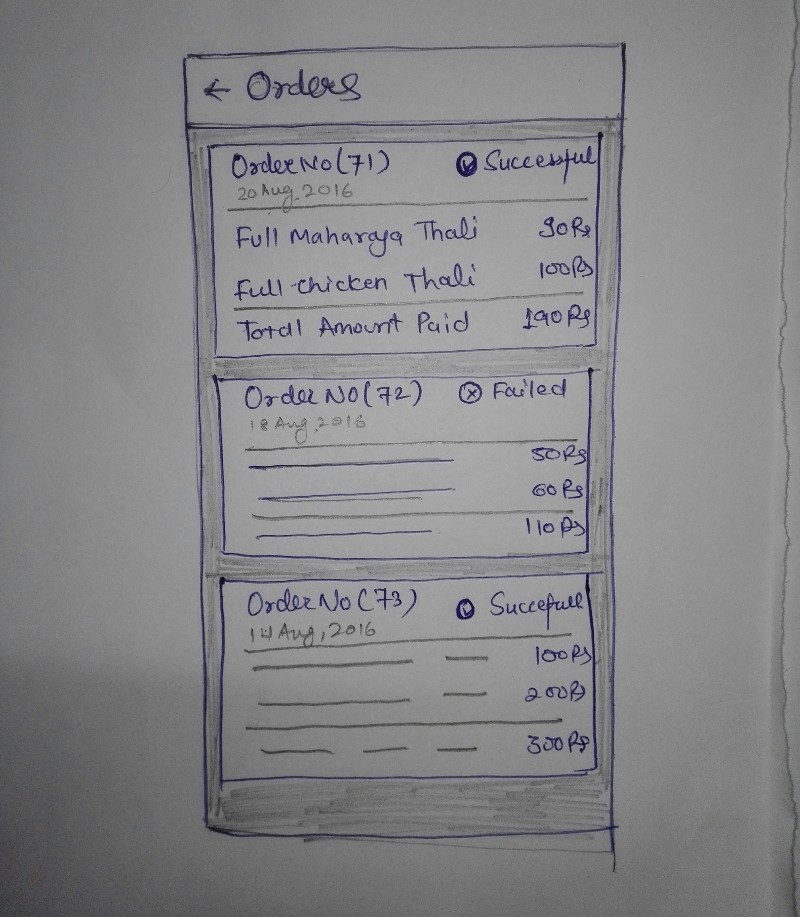 ← Orders
Order No (71) Successful
20 Aug, 2016
Full Maharaja Thali 90 Rs
Full chicken Thali 100 Rs
Total Amount Paid 190 Rs
Order No (72) Failed
18 Aug, 2016
50 Rs
60 Rs
110 Rs
Order No (73) Succefull
14 Aug, 2016
100 Rs
200 Rs
300 Rs